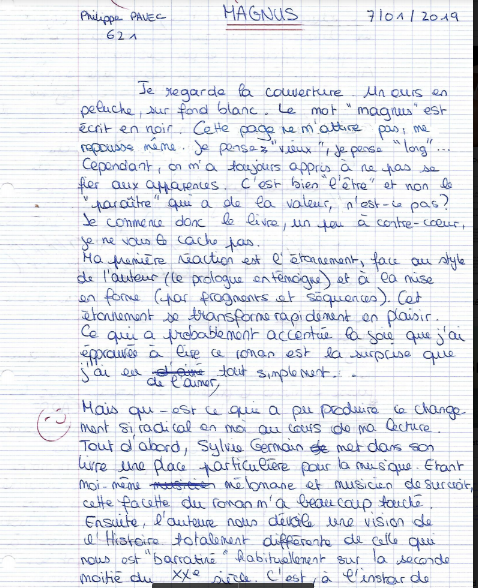 Philippe PAVEC
MAGNUS
7/01/2019
621
Je regarde la couverture. Un ours en
peluche, sur fond blanc. Le mot "magnus" est
écrit en noir. Cette page ne m'attire pas, me
repousse même. Je pense "vieux", je pense "long"...
Cependant, on m'a toujours appris à ne pas se
fier aux apparences. C'est bien "l'être" et non le
"paraître" qui a de la valeur, n'est-ce pas?
Je commence donc le livre, un peu à contre-coeur,
je ne vous le cache pas.
Ma première réaction est l'étonnement, face au style
de l'auteur (le prologue en témoigne) et à la mise
en forme (par fragments et séquences). Cet
étonnement se transforme rapidement en plaisir.
Ce qui a probablement accentué la joie que j'ai
éprouvée à lire ce roman est la surprise que
j'ai eu tout simplement.
de l'aimer,
Mais qu-est ce qui a pu produire ce change-
ment si radical en moi au cours de ma lecture.
Tout d'abord, Sylvie Germain met dans son
livre une place particulière pour la musique. Etant
moi-même mélomane et musicien de surcroît,
cette facette du roman m'a beaucoup touché.
Ensuite, l'auteure nous dévoile une vision de
l'Histoire totalement différente de celle qui
nous est "barratiné" habituellement sur la seconde
moitié du XXe siècle. C'est à l'instar de